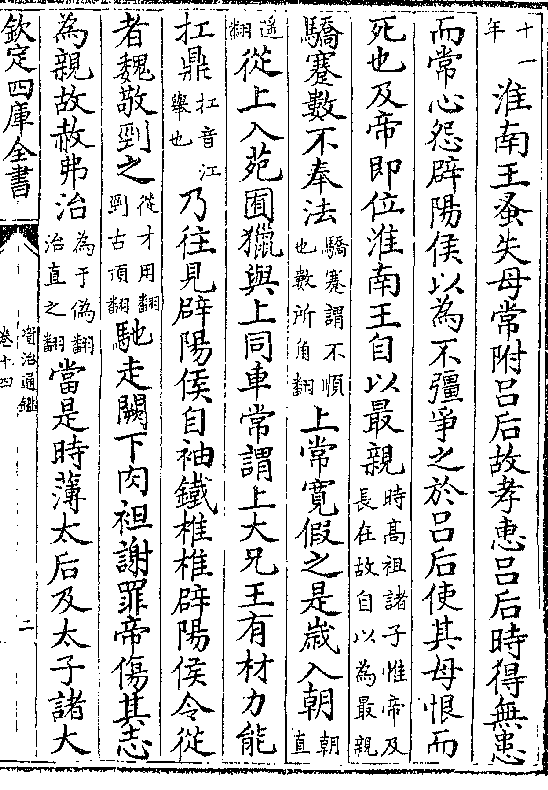 十一年淮南王蚤失母常附吕后故孝惠吕后時得無患
而常心怨辟陽侯以為不彊爭之於吕后使其母恨而
死也及帝即位淮南王自以最親時髙祖諸子惟帝及長在故自以為最親
驕蹇數不奉法驕蹇謂不順也數所角翻上常寛假之是歲入朝朝直
遥翻從上入苑囿獵與上同車常謂上大兄王有材力能
扛鼎扛音江舉也乃往見辟陽侯自袖鐵椎椎辟陽侯令從
者魏敬剄之從才用翻剄古頂翻馳走闕下肉袒謝罪帝傷其志
為親故赦弗治為于偽翻治直之翻當是時薄太后及太子諸大
欽定四庫全書
資治通鑑
卷十四
二